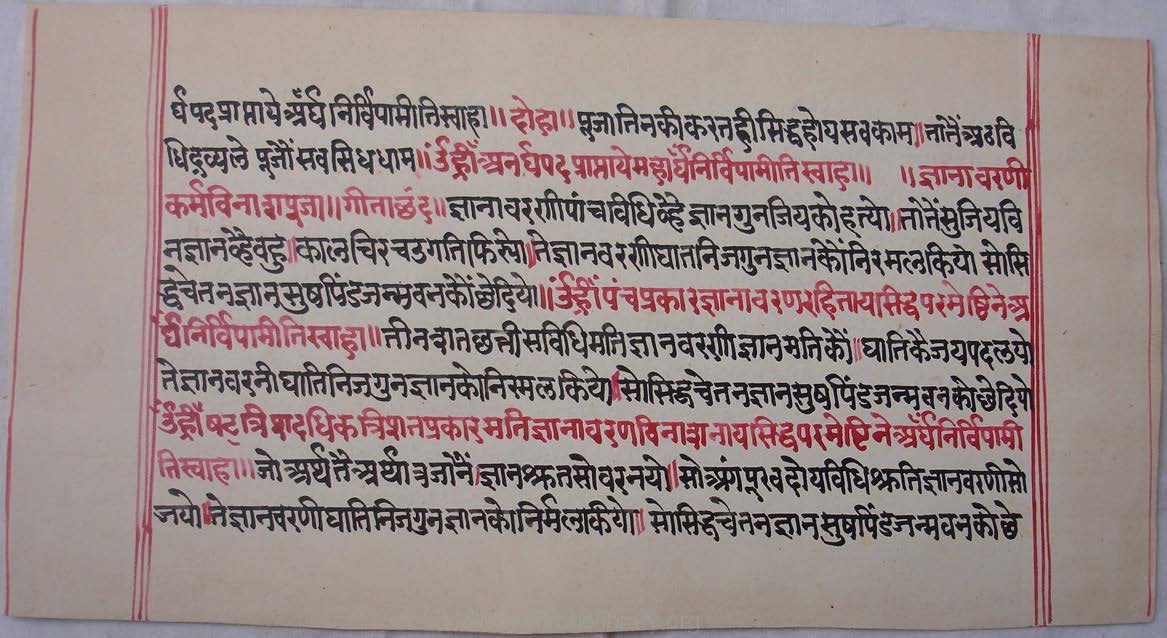 र्घपदप्राप्तायेअर्घनिर्विपामीतिस्वाहा॥ दोहा॥ पूजातिनकीकरतहीसिद्धहोयसवकाम॥तातैंअठवि
धिद्रव्यले पूजौंसवसिधधाम॥ ॐह्रींअनर्घपदप्राप्तायेमहार्घंनिर्विपामीतिस्वाहा॥ ॥ज्ञानावरणी
कर्मविनाशपूजा॥ गीताछंद॥ ज्ञानावरणीपांचविधिव्हैज्ञानगुनजियकोहत्यो॥तातैंसुजियवि
नज्ञानव्हैवहु॥कालचिरचउगतिफिर्त्यो॥तेज्ञानवरणीघातनिजगुनज्ञानकौंनिरमलकियो सोसि
द्धचेतनज्ञानसुषपिंडजन्मवनकौंछेदियो॥ ॐह्रींपंचप्रकारज्ञानावरणरहितायसिद्धपरमेष्ठिनेअ
र्घंनिर्विपामीतिस्वाहा॥ तीनशतछत्तीसविधिमतिज्ञानवरणीज्ञानमतिकौं॥घातिकैजयपदलयो
तेज्ञानवरनीघातिनिजगुनज्ञानकोनिरमलकियो॥सोसिद्धचेतनज्ञानसुषपिंडजन्मवनकोछेदियो
ॐह्रींषट्त्रिंशदधिकत्रिशतप्रकारमतिज्ञानावरणविनाशनायसिद्धपरमेष्टिनेअर्घंनिर्विपामी
तिस्वाहा॥ जोअर्थतैअर्थात्रजोनैं॥ज्ञानश्रुतसोवरनयो॥सोअंगपूरवदोयविधिश्रुतिज्ञानवरणीसो
जयो॥तेज्ञानवरणीघातिनिजगुनज्ञानकोनिर्मलकियो॥ सोसिद्धचेतनज्ञानसुषपिंडजन्मवनकोछे